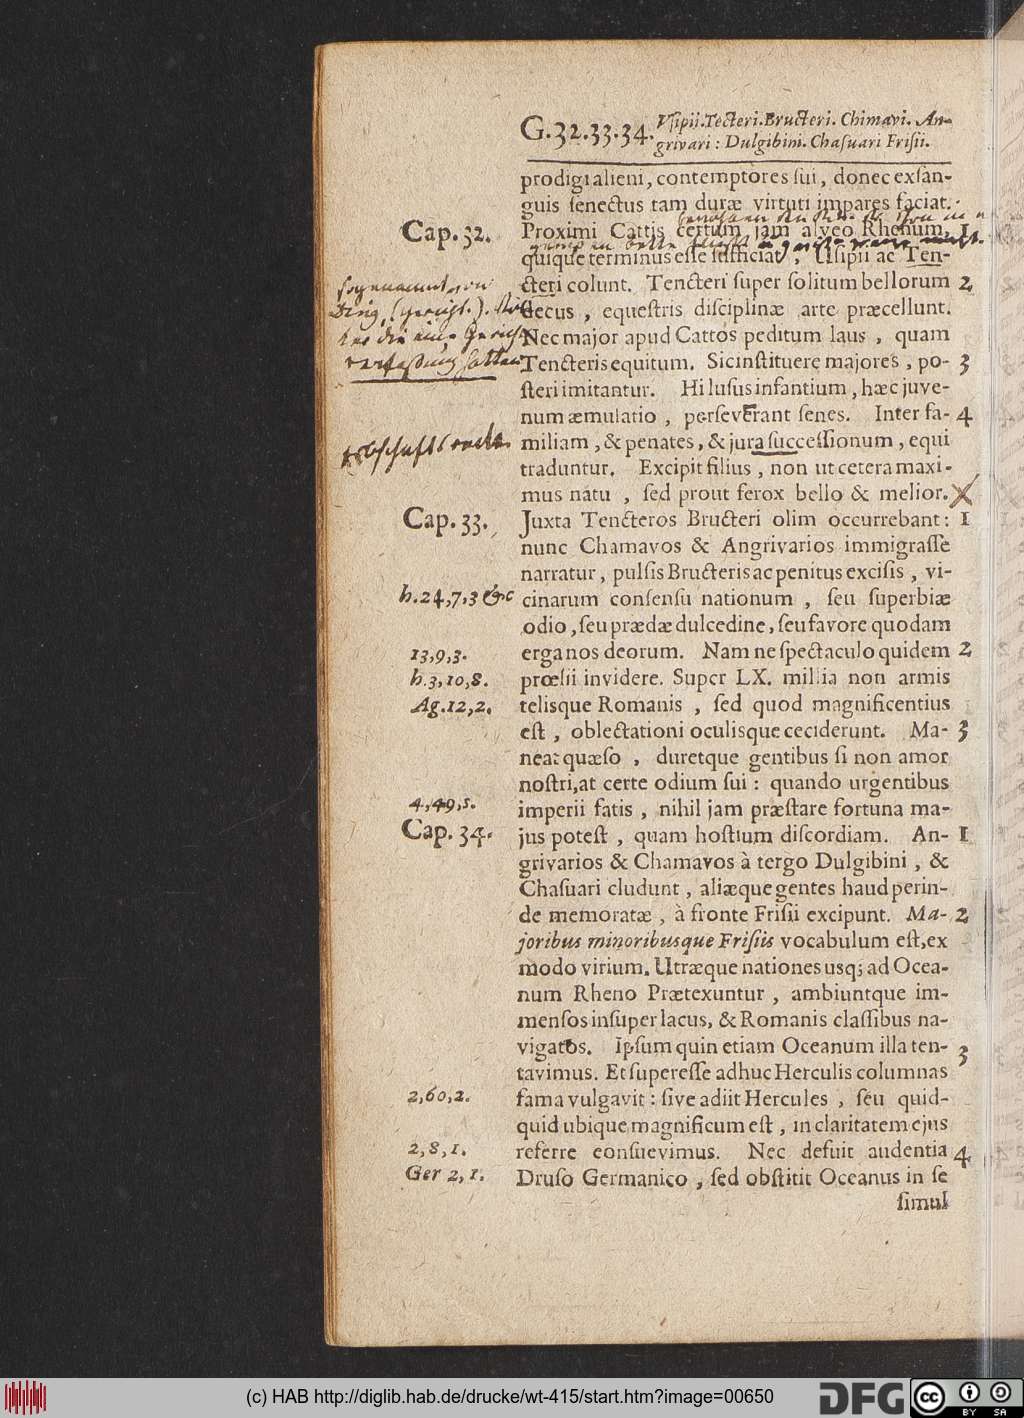 G.32.33.34. Vſipii.Tecteri.Bructeri. Chimavi. An-
grivari : Dulgibini. Chaſuari Friſii.
prodigi alieni, contemptores ſui, donec exſan-
guis ſenectus tam duræ virtuti impares faciat.
Cap. 32. Proximi Cattis certum jam alveo Rhenum, 1
quique terminus eſſe ſufficiat, Uſipii ac Ten-
cteri colunt. Tencteri ſuper ſolitum bellorum 2
decus, equeſtris diſciplinæ arte præcellunt.
Nec major apud Cattos peditum laus, quam
Tencteris equitum. Sic inſtituere majores, po- 3
ſteri imitantur. Hi luſus infantium, hæc juve-
num æmulatio, perſeverant ſenes. Inter fa- 4
miliam, & penates, & jura ſucceſſionum, equi
traduntur. Excipit filius, non ut cetera maxi-
mus natu, ſed prout ferox bello & melior.
Cap. 33. Juxta Tencteros Bructeri olim occurrebant: 1
nunc Chamavos & Angrivarios immigraſſe
narratur, pulſis Bructeris ac penitus exciſis, vi-
h.24,7,3 &c cinarum conſenſu nationum, ſeu ſuperbiæ
odio, ſeu prædæ dulcedine, ſeu favore quodam
13,9,3. erga nos deorum. Nam ne ſpectaculo quidem 2
h.3,10,8. prœlii invidere. Super LX. millia non armis
Ag.12,2. telisque Romanis, ſed quod magnificentius
eſt, oblectationi oculisque ceciderunt. Ma- 3
neat quæſo, duretque gentibus ſi non amor
noſtri, at certe odium ſui: quando urgentibus
4,49,5. imperii fatis, nihil jam præſtare fortuna ma-
Cap. 34. jus poteſt, quam hoſtium diſcordiam. An- 1
grivarios & Chamavos à tergo Dulgibini, &
Chaſuari cludunt, aliæque gentes haud perin-
de memoratæ, à fronte Friſii excipunt. Ma- 2
joribus minoribusque Friſiis vocabulum eſt, ex
modo virium. Utræque nationes usq; ad Ocea-
num Rheno Prætexuntur, ambiuntque im-
menſos inſuper lacus, & Romanis claſſibus na-
vigatos. Ipſum quin etiam Oceanum illa ten- 3
tavimus. Et ſupereſſe adhuc Herculis columnas
2,60,2. fama vulgavit: ſive adiit Hercules, ſeu quid-
quid ubique magnificum eſt, in claritatem ejus
2,8,1. referre conſuevimus. Nec defuit audentia 4
Ger 2,1. Druſo Germanico, ſed obſtitit Oceanus in ſe
ſimul
(c) HAB http://diglib.hab.de/drucke/wt-415/start.htm?image=00650
DFG
CC BY SA